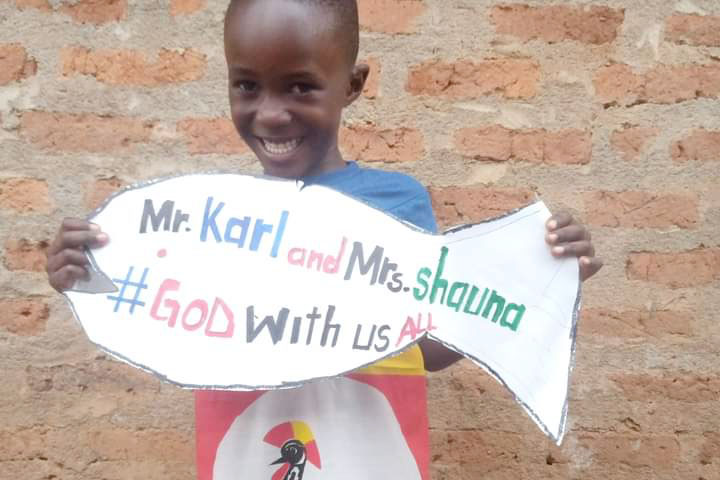 Mr. Karl and Mrs. shauna
#GOD With us ALL